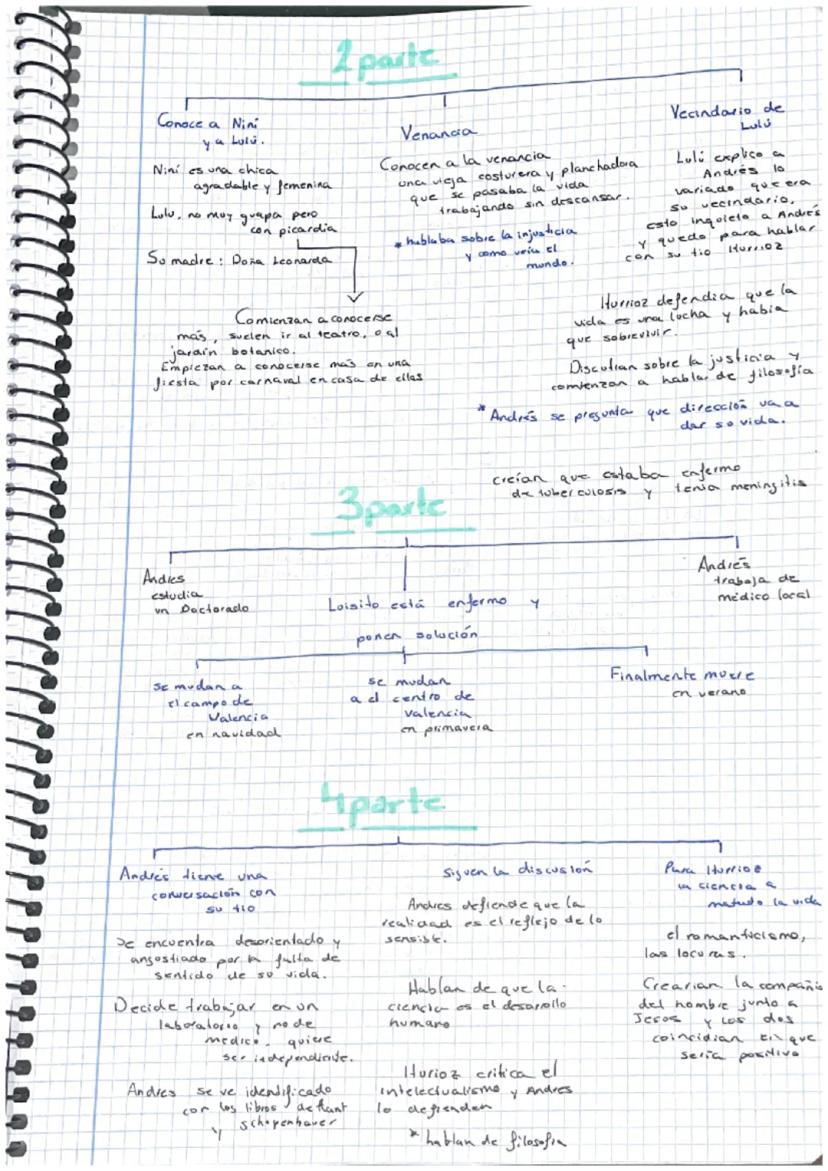 2 parte
Conoce a Niní
y a Lulú.
Niní es una chica
agradable y femenina
Lulu, no muy guapa pero
con picardia
Su madre: Doña Leonarda
Comienzan a conocerse
más, suelen ir al teatro, o al
jardín botanico.
Empiezan a conocerse más en una
fiesta por carnaval en casa de ellas
Venancia
Conocen a la venancia
una vieja costurera y planchadora
que se pasaba la vida
trabajando sin descansar.
* hablaba sobre la injusticia
y como veia el
mundo.
Vecindario de
Lulú
Lulú explico a
Andrés lo
variado que era
su vecindario,
esto inquieto a Andrés
y quedo para hablar
con su tio Iturrioz
Iturrioz defendia que la
vida es una lucha y habia
que sobrevivir.
Discutian sobre la justicia y
comienzan a hablar de filosofía
* Andrés se pregunta que dirección va a
dar su vida.
creían que estaba enfermo
de tuberculosis y tenia meningitis
3 parte
Andres
estudia
un Doctorado
Luisito está enfermo y
ponen solución
Andrés
trabaja de
médico local
se mudan a
el campo de
Valencia
en navidad
se mudan
a el centro de
valencia
en primavera
Finalmente muere
en verano
4 parte
Andrés tiene una
conversación con
su tio
Se encuentra desorientado y
angostiado por la falta de
sentido de su vida.
Decide trabajar en un
laboratorio y no de
medico. quiere
ser independiente.
Andres se ve identificado
con los libros de Kant
y schopenhauer
Siguen la discusión
Andres defiende que la
realidad es el reflejo de lo
sensible.
Hablan de que la
ciencia es el desarollo
humano
Iturioz critica el
intelectualismo y Andres
lo defienden
* hablan de filosofia
Para Iturrioz
la ciencia a
matado la vida
el romanticismo,
las locuras.
Crearian la compañia
del hombre junto a
Jesus y los dos
coincidian en que
seria positivo